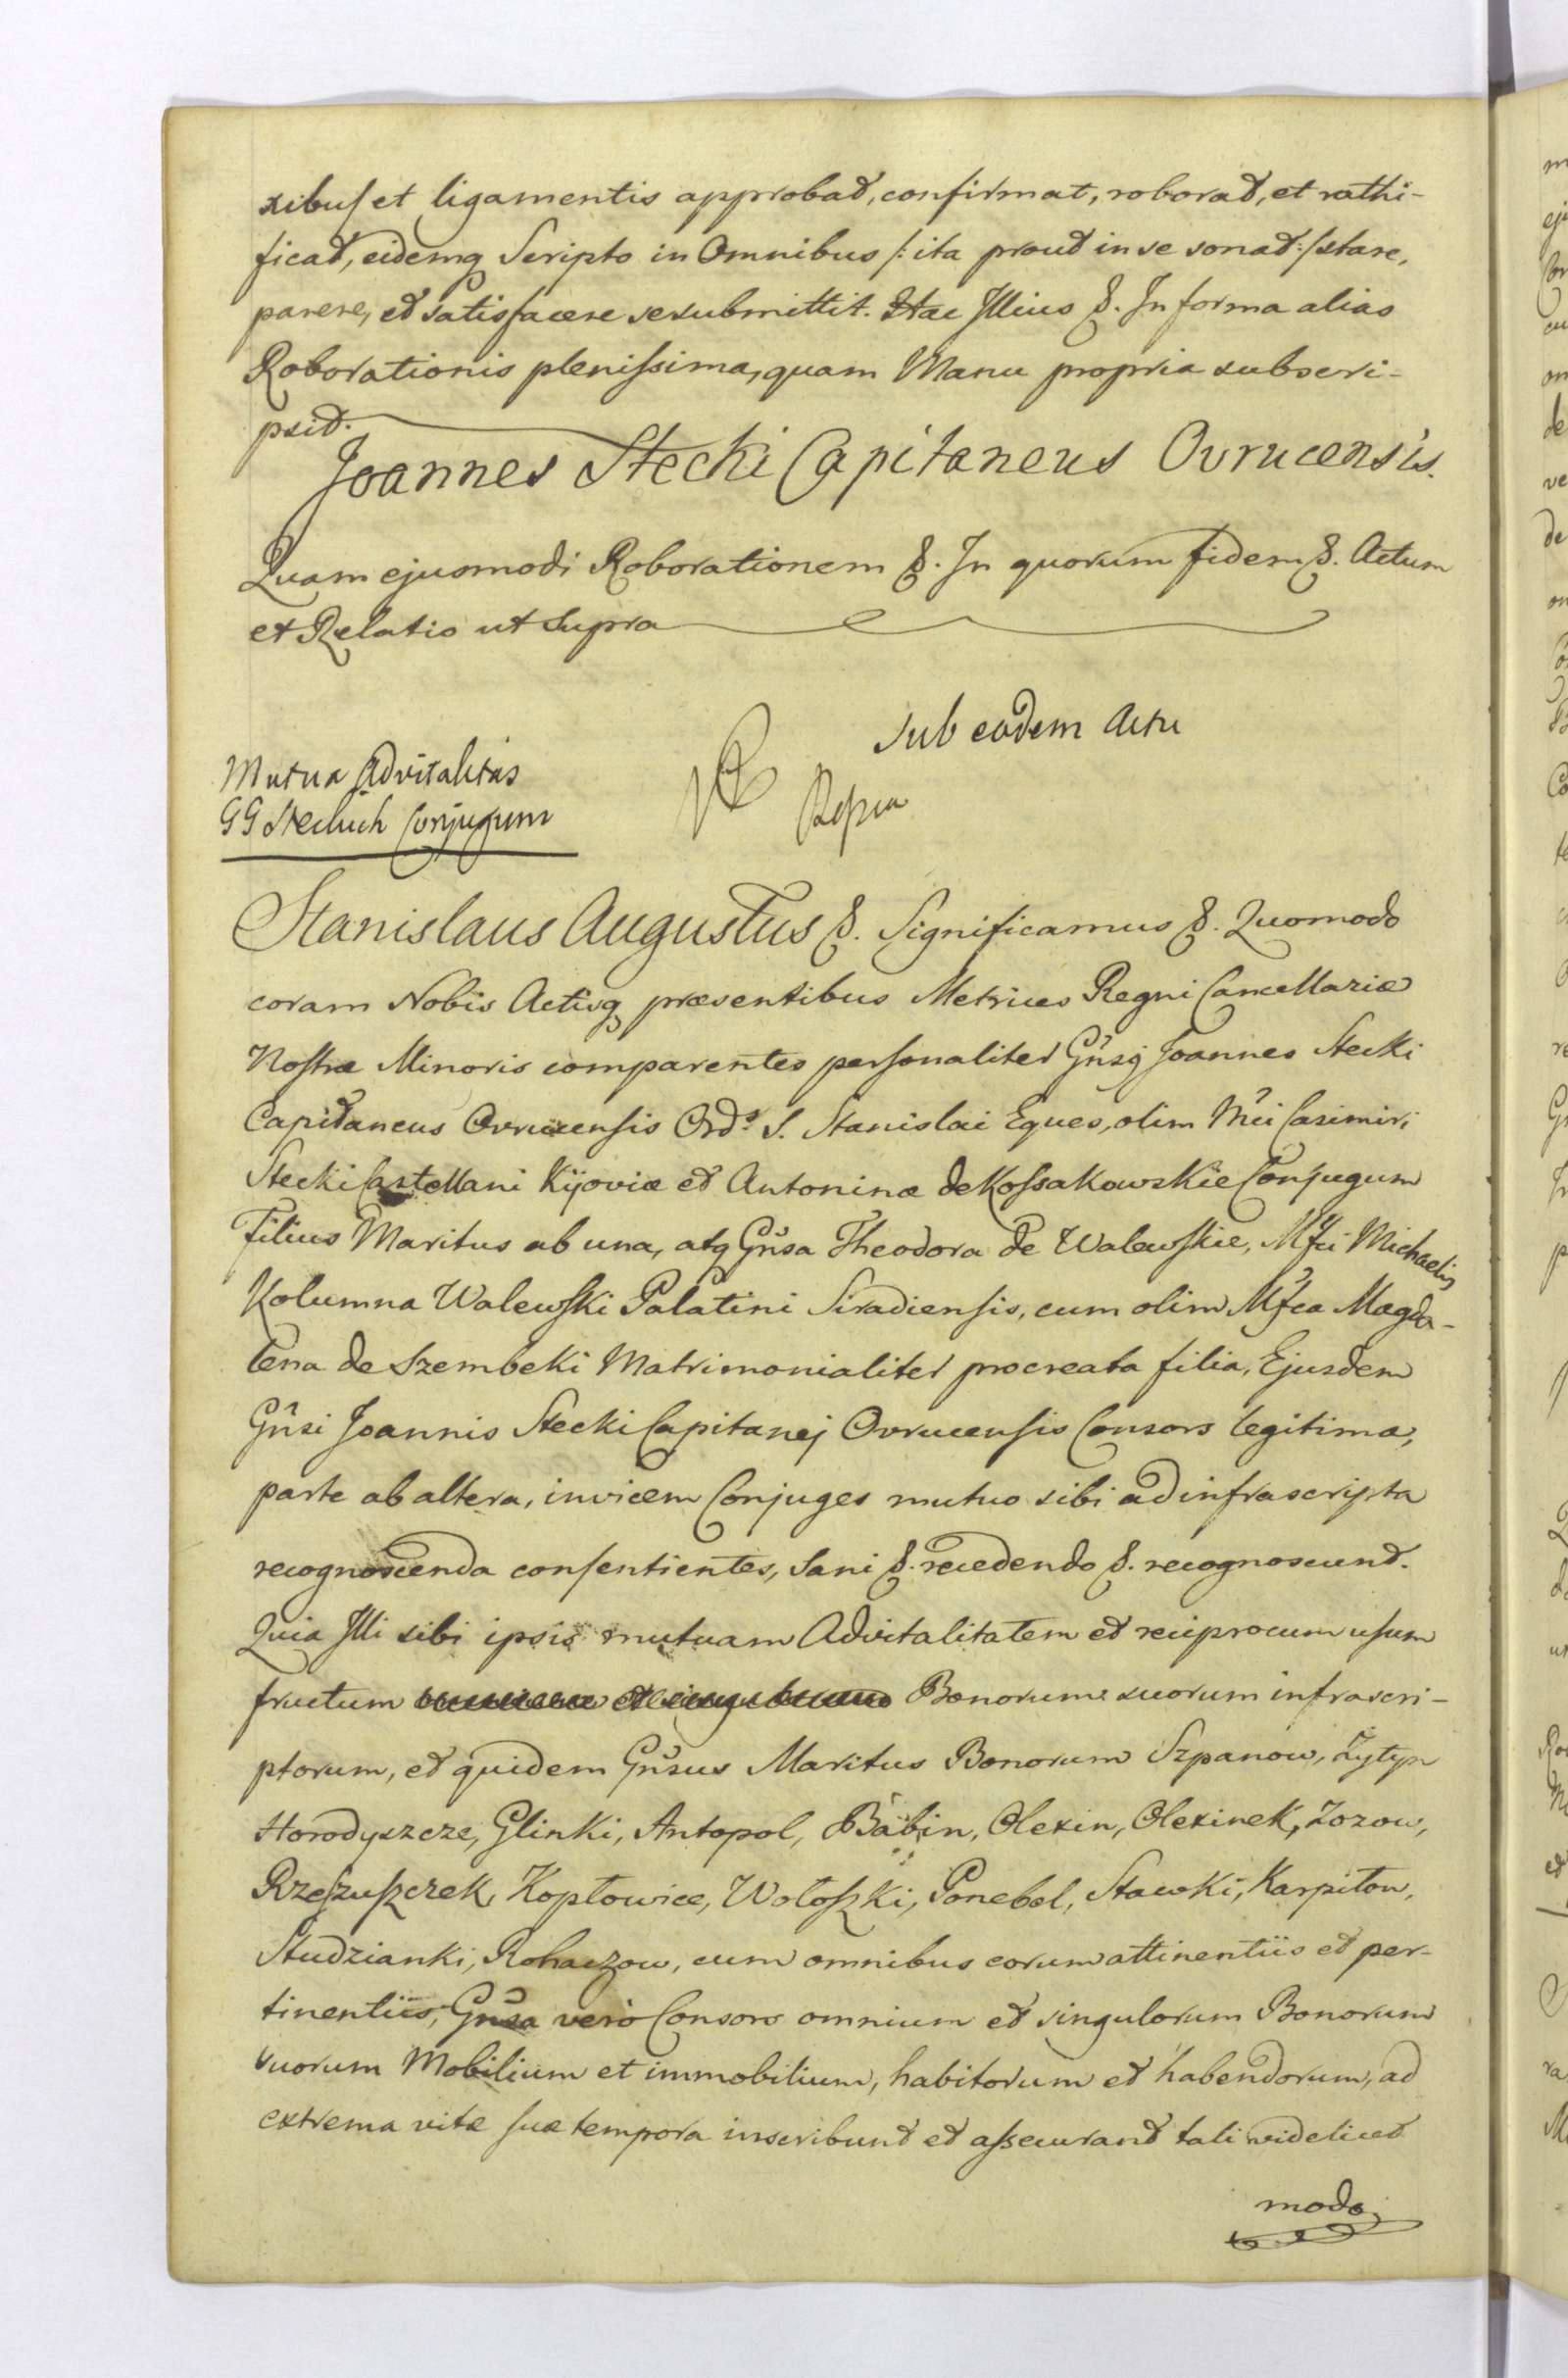 xibus et ligamentis approbat, confirmat, roborat, et rathi-
ficat, eidemq Scripto in Omnibus /: ita prout in se sonat :/ stare,
parere, et satisfacere se submittit. Hac Illius &. In forma alias
Roborationis plenissima, quam Manu propria subscri-
psit.
Joannes Stecki Capitaneus Ovrucensis.
Quam ejusmodi Roborationem &. In quorum fidem &. Actum
et Relatio ut supra
Sub eodem Actu
Mutua Advitalitas
GG Steckich Conjugum
Stanislaus Augustus &. Significamus &. Quomodo
coram Nobis Actisq præsentibus Metrices Regni Cancellariæ
Nostræ Minoris comparentes personaliter Gnsq Joannes Stecki
Capitaneus Ovrucensis Ords S. Stanislai Eques, olim Mci Casimiri
Stecki Castellani Kijoviæ et Antoninæ de Kossakowskie Conjugum
Filius Maritus ab una, atq Gnsa Theodora de Walewskie, Mfci Michaelis
Kolumna Walewski Palatini Siradiensis, cum olim Mfca Magda-
lena de Szembeki Matrimonialiter procreata filia, Ejusdem
Gnsi Joannis Stecki Capitanej Ovrucensis Consors legitima,
parte ab altera, invicem Conjuges mutuo sibi ad infrascripta
recognoscenda consentientes, Sani &. recedendo &. recognoscunt.
Quia Illi sibi ipsis mutuam Advitalitatem et reciprocum usum
fructum Bonorum suorum infrascri-
ptorum, et quidem Gnsus Maritus Bonorum Szpanow, Zytyn
Horodyszcze, Glinki, Antopol, Babin, Olexin, Olexinek, Zozow,
Rzeszuszczek, Koptowice, Wołoszki, Ponebel, Stawki, Karpiłow,
Studzianki, Rohaczow, cum omnibus eorum attinentiis et per-
tinentiis, Gnsa vero Consors omnium et singulorum Bonorum
suorum Mobilium et immobilium, habitorum et habendorum, ad
extrema vitæ suæ tempora inscribunt et assecurant tali videlicet
modo